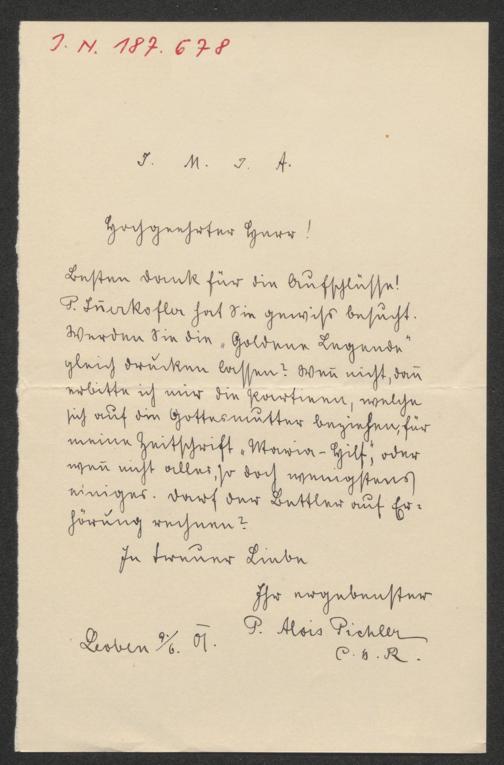 J. N. 187.678
J. M. J. A.
Hochgeehrter Herr!
Besten Dank für die Aufschlüsse!
P. hat Sie gewiss besucht.
Werden Sie die „Goldene Legende“
gleich drucken lassen? Weñ nicht, dañ
erbitte ich mir die Partieen, welche
sich auf die Gottesmutter beziehen, für
meine Zeitschrift „Maria-Hilf“, oder
weñ nicht alles, so doch wenigstens
einiges. Darf der Bettler auf Er=
hörung rechnen?
In treuer Liebe
Ihr ergebenster
P. Alois Pichler
C.s.R.
Leoben 9/6. 01.